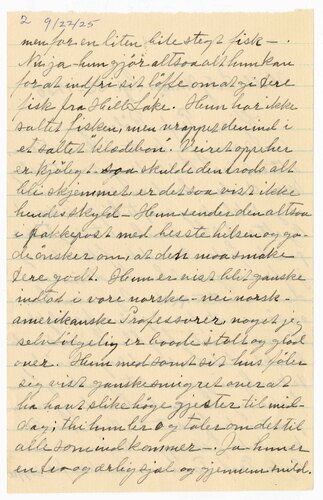 2 9/22/25
men for en liten bite stegt fisk—.
Nu ja— hun gjør altsaa alt hun kan
for at indfri sit løfte om at gi Dere
fisk fra Hill Lake. Hun har ikke
saltet fisken, men vrappet den ind i
et saltet "klædebon". Veiret oppe her
er kjøligt— skulde den trods alt
bli skjemmet, er det saa vist ikke
hendes skyld— Hun sender den altsaa
i pakkepost med beste hilsen og go-
de ønsker om, at den maa smake
Dere godt. Hun er vist blit ganske
indtad i vore norske— nei norsk-
amerikanske Professorer, noget je,
selvfølgelig er baade stolt og glad
over. Hun med samt sit hus føler
sig vist ganske smigret over at
ha havt slike høge gjester til mid-
dag; thi hun ler og taler om det til
alle som ind kommer—. Ja hun er
en tro og ærlig sjæl og gjennem snild.